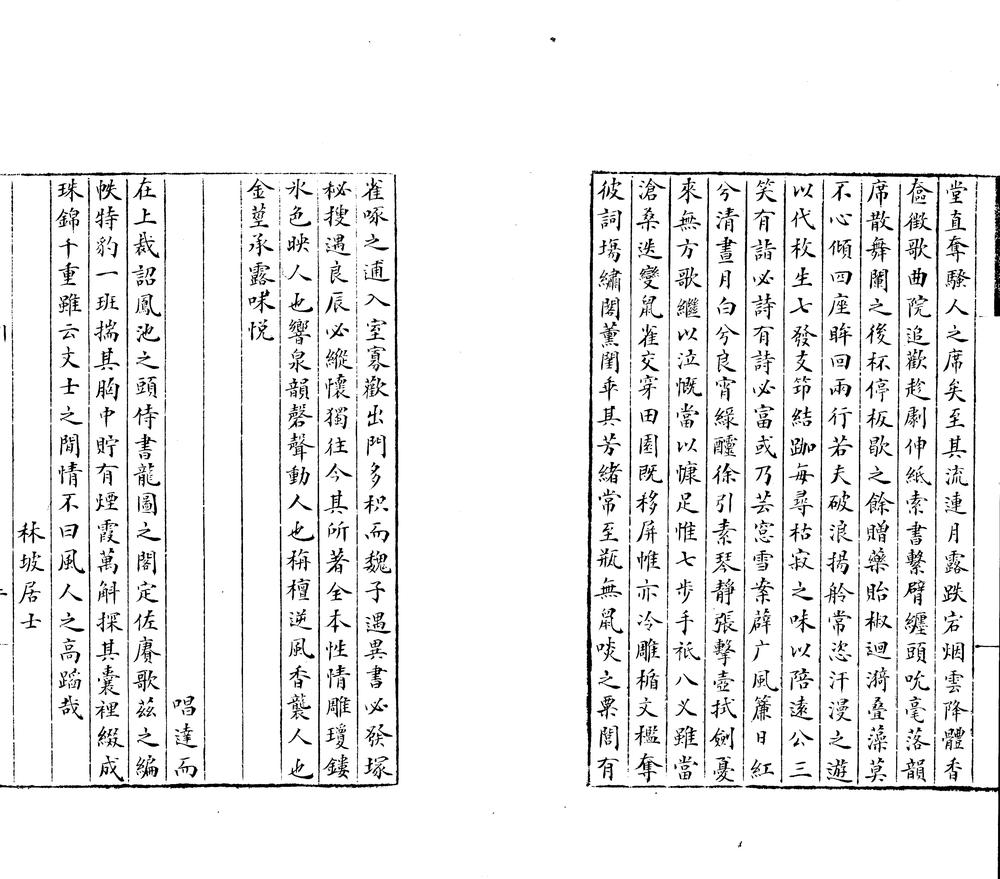 堂直奪騷人之席矣至其流連月露跌宕烟雲降體香
奩徵歌曲院追歡趁劇伸紙索書繫臂纏頭吮毫落韻
席散舞闌之後杯停板歇之餘贈藥貽椒迴漪疊藻莫
不心傾四座眸回兩行若夫破浪揚舲常恣汗漫之遊
以代枚生七發支筇結跏每尋枯寂之味以陪遠公三
笑有詣必詩有詩必富或乃芸窓雪案薜广風簾日紅
兮清晝月白兮良宵綠醽徐引素琴靜張擊壺拭劍憂
來無方歌繼以泣慨當以慷足惟七步手祇八乂雖當
滄桑迭變鼠雀交穿田園既移屏帷亦冷雕楯文檻奪
彼詞塲繡閣薰閨乖其芳緒常至瓶無鼠啖之粟閤有
雀啄之逋入室寡歡出門多枳而魏子遇異書必發塚
秘搜遇良辰必縱懷獨往今其所著全本性情雕瓊鏤
氷色映人也響泉韻磬聲動人也栴檀逆風香襲人也
金莖承露味悅
唱達而
在上裁詔鳳池之頭侍書龍圖之閣定佐賡歌茲之編
帙特豹一班揣其胸中貯有煙霞萬斛探其囊裡綴成
珠錦千重雖云文士之閒情不曰風人之高蹈哉
林坡居士